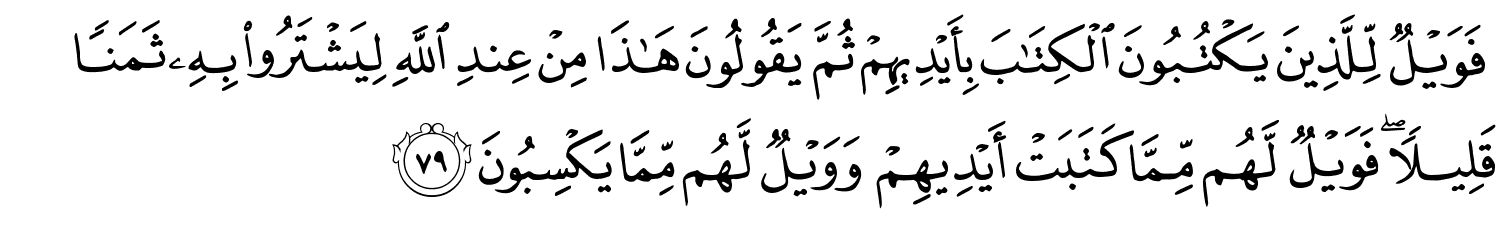 فَوَيْلٌ لِّلَّذِينَ يَكْتُبُونَ ٱلْكِتَـٰبَ بِأَيْدِيهِمْ ثُمَّ يَقُولُونَ هَـٰذَا مِنْ عِندِ ٱللَّهِ لِيَشْتَرُوا۟ بِهِۦ ثَمَنًا
قَلِيلًا ۖ فَوَيْلٌ لَّهُم مِّمَّا كَتَبَتْ أَيْدِيهِمْ وَوَيْلٌ لَّهُم مِّمَّا يَكْسِبُونَ ٧٩